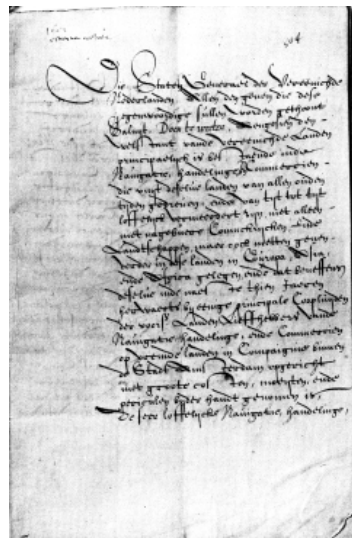 Die Staten Generael der Vereenichde
Nederlanden, Allen den genen die dese
jegenwoordige sullen worden gethoont
Saluyt. Doen te weten, Alsoo den
welstant vande vereenichde Landen
principaelick is bestaende inde
Navigatie, handelinge, Commercien
die uuyt deselve landen van allen ouden
tijden gedreven, ende van tijt tot tijt
loffelick vermeerdert zijn, niet alleen
met nagebuere Coninckrijcken, ende
Landtschappen, maer oock metten genen
verder in landen in Europa, Asia
ende Africa gelegen, ende dat beneffens
deselve inde naeste thien jaeren
herwaerts bij eenige principale Coopluyden
der voors. Landen Liefhebbers vande
Navigatie handelinge, ende Commercien
op vreemde landen in Compaignie binnen
Stadt Amsterdam opgericht
met groote costen, moeyten, ende
periculen byder handt genomen is,
De seer loffelijcke Navigatie, handelinge,